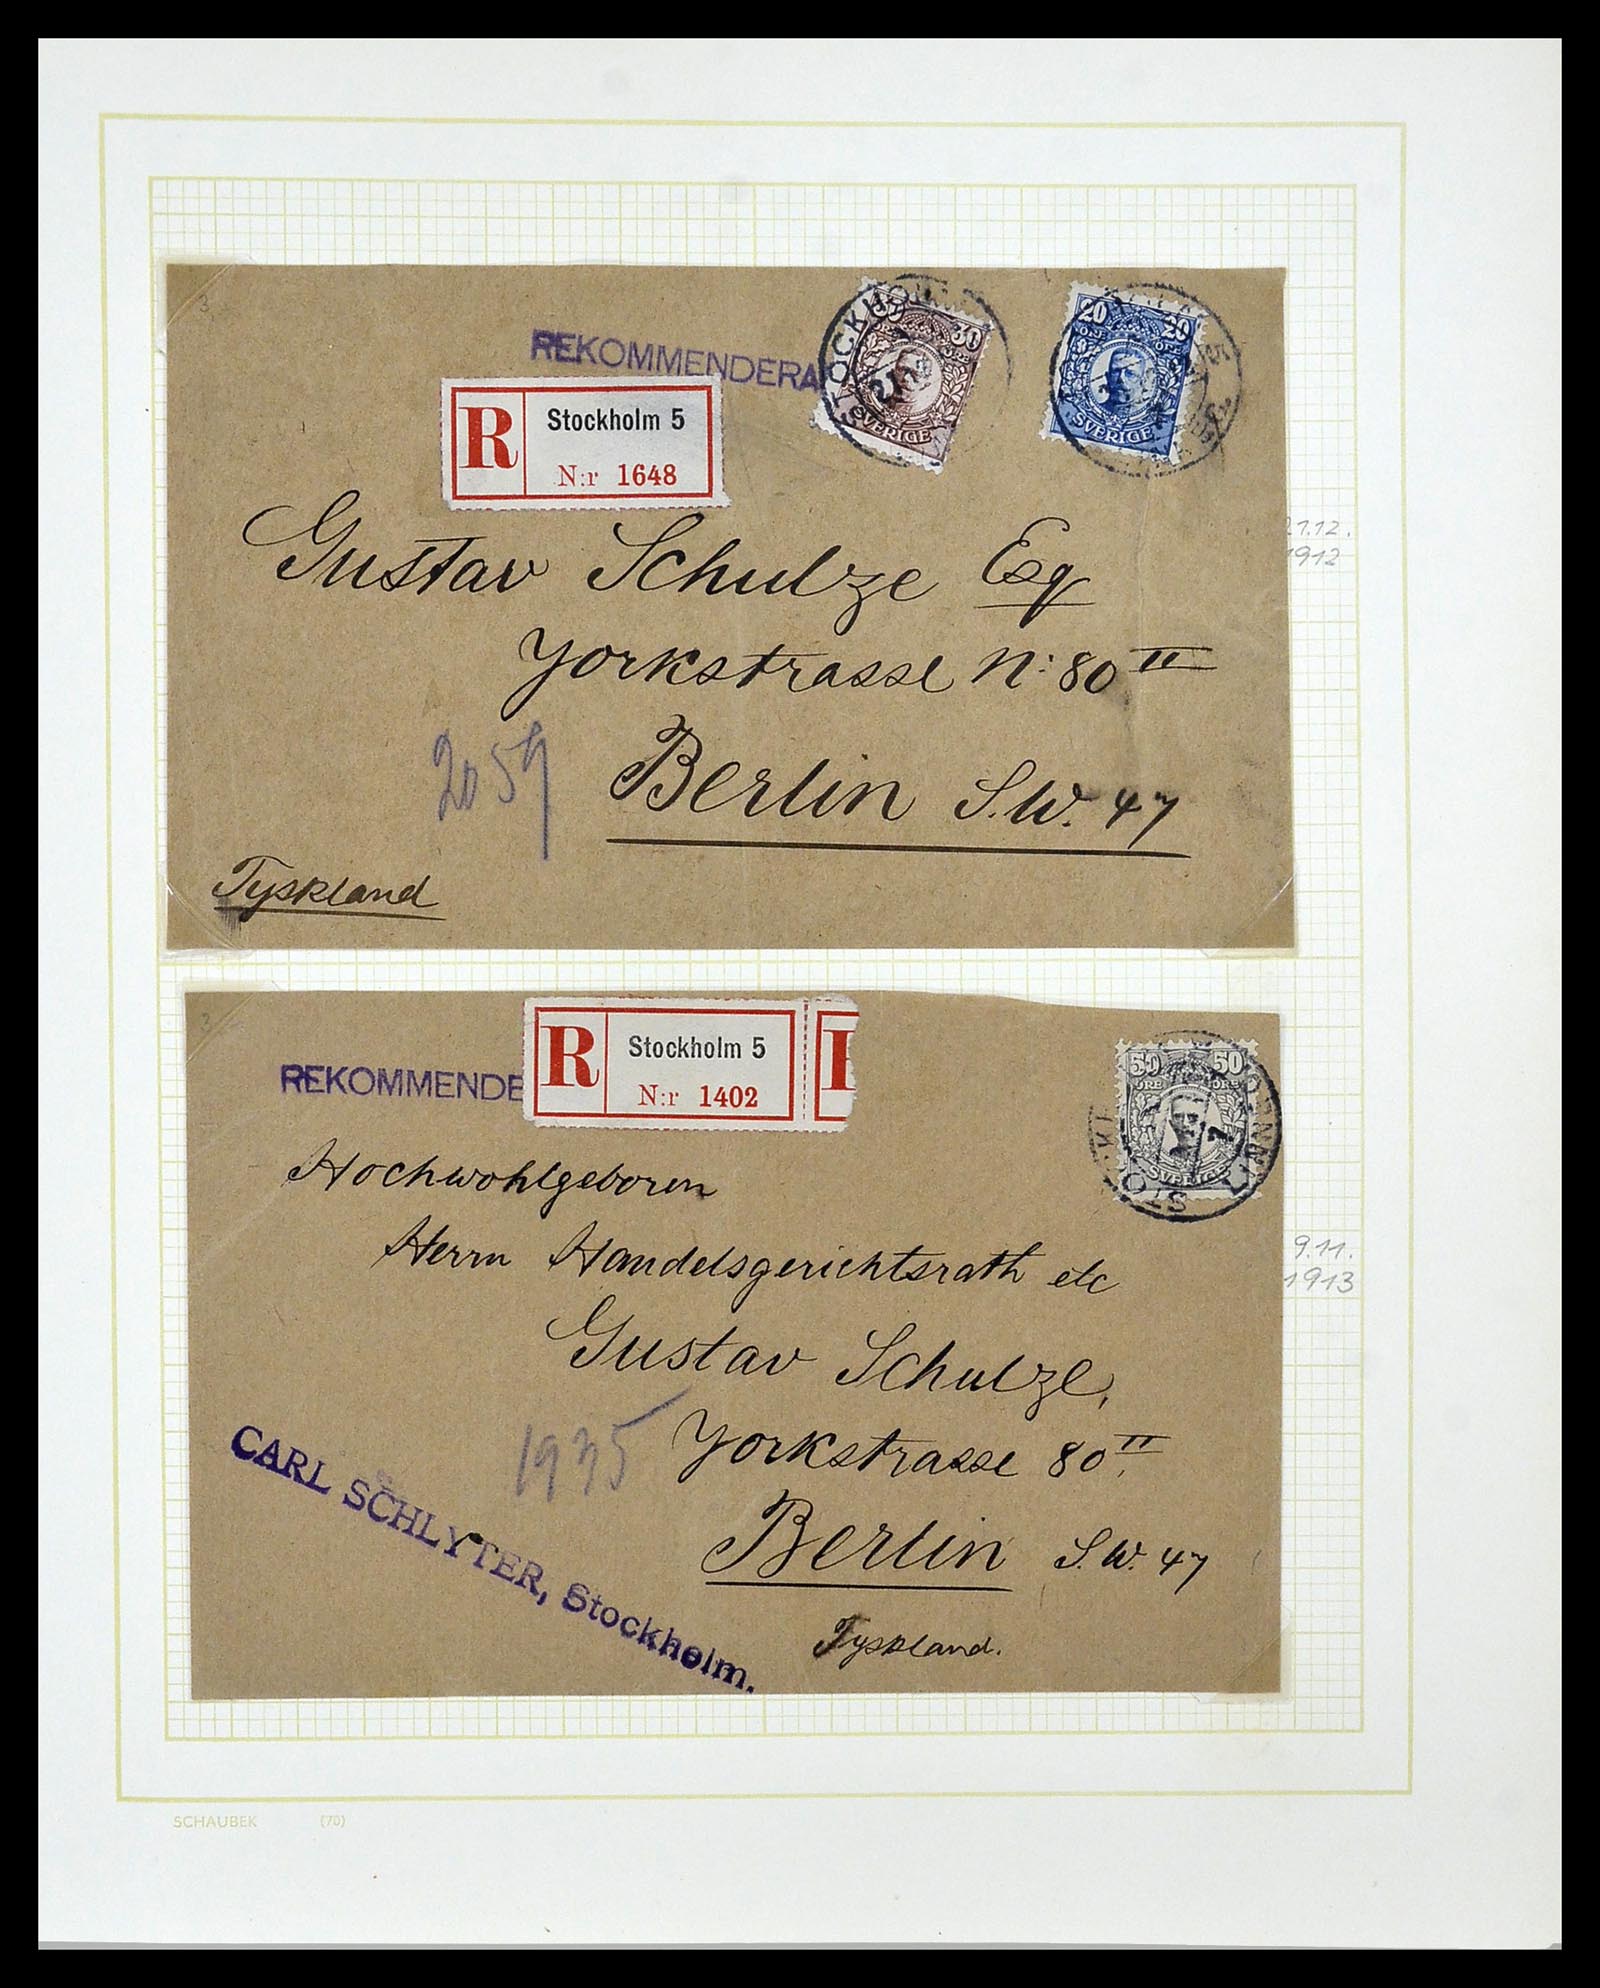 3
REKOMMENDERA
R
Stockholm 5
N:r 1648
30
ÖRE
SVERIGE
STOCKHO
20 20
ÖRE ÖRE
SVERIGE
Gustav Schulze Esq
Yorkstrasse N: 80 II
Berlin S.W. 47
2059
Tyskland
21.12.
1912
3
REKOMMENDE
R
Stockholm 5
N:r 1402
50 50
ÖRE ÖRE
SVERIGE
Hochwohlgeboren
Herrn Handelsgerichtsrath etc
Gustav Schulze,
Yorkstrasse 80 II.
Berlin S.W. 47
Tyskland.
1935
CARL SCHLYTER, Stockholm.
9.11.
1913
SCHAUBEK (70)